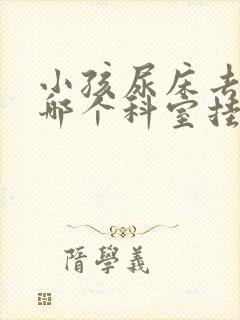 小孩尿床去
哪个科室挂
隋學義